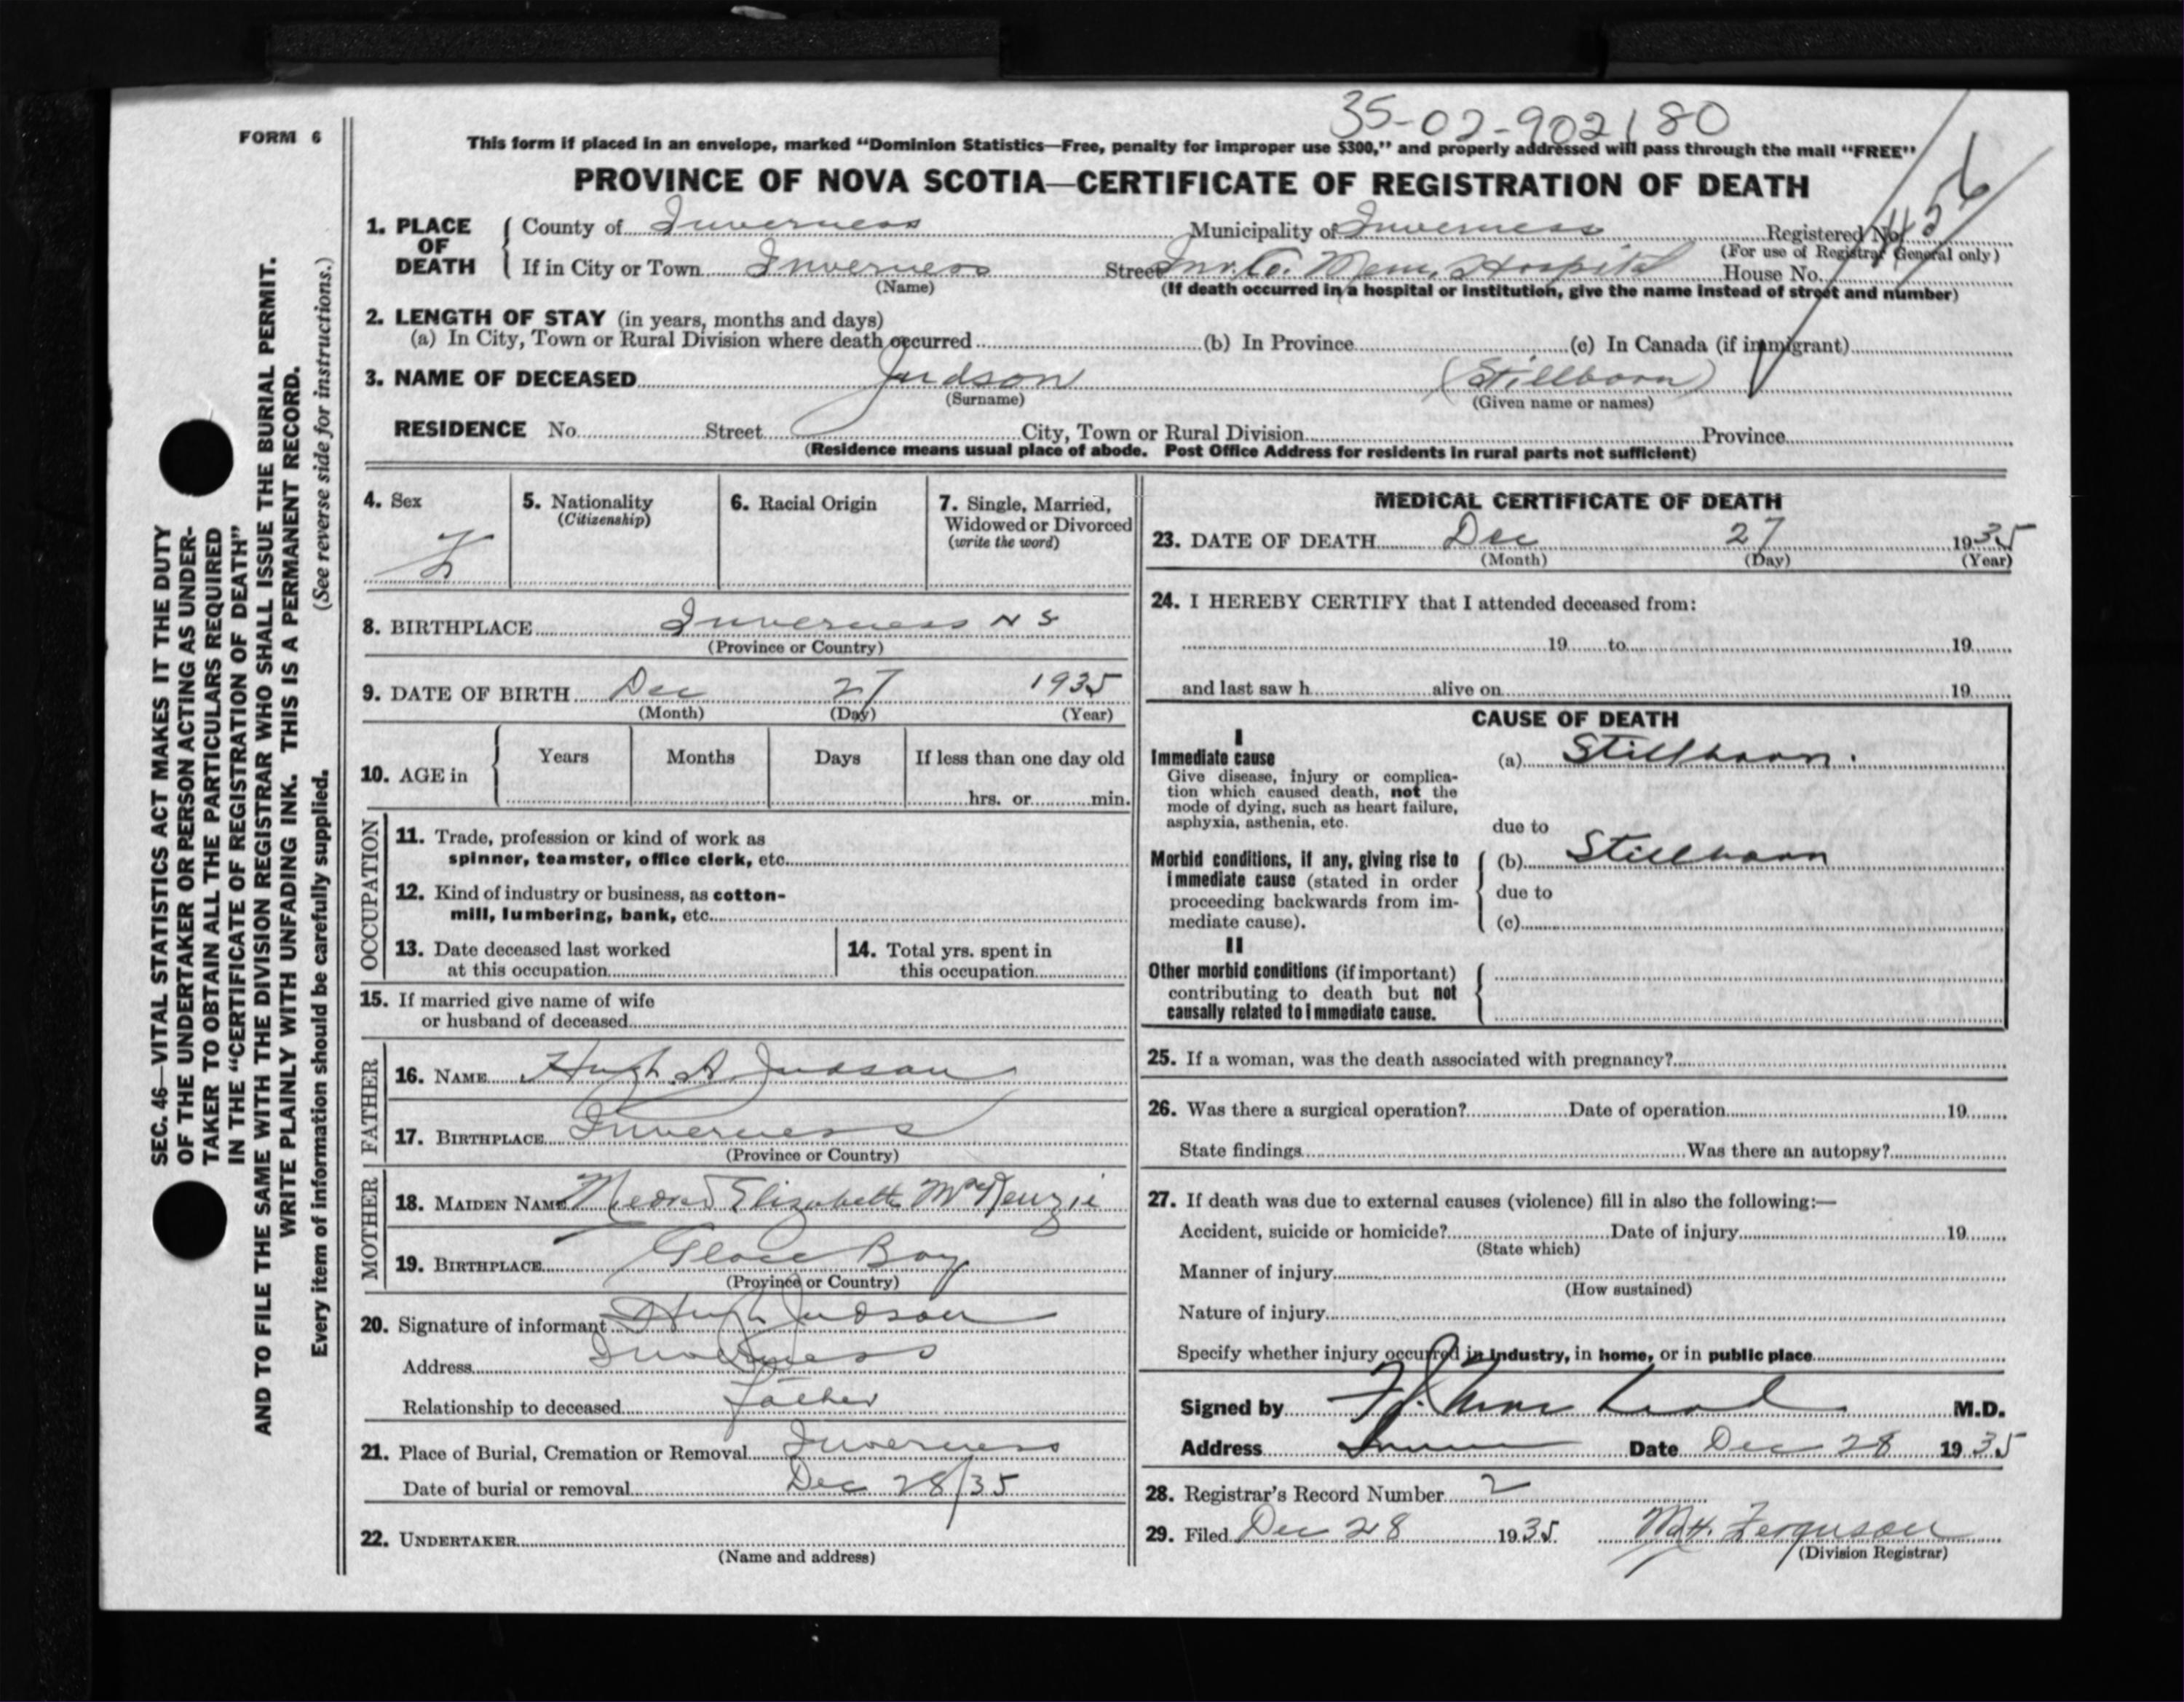 35-02-902180
FORM 6
This form if placed in an envelope, marked "Dominion Statistics—Free, penalty for improper use $300," and properly addressed will pass through the mail "FREE"
PROVINCE OF NOVA SCOTIA—CERTIFICATE OF REGISTRATION OF DEATH
1. PLACE OF DEATH
County of Inverness Municipality of Inverness Registered No.
(For use of Registrar General only)
If in City or Town Inverness Street Inv. Co. Mem. Hospital House No.
(Name) (If death occurred in a hospital or institution, give the name instead of street and number)
2. LENGTH OF STAY (in years, months and days)
(a) In City, Town or Rural Division where death occurred (b) In Province (c) In Canada (if immigrant)
3. NAME OF DECEASED Judson (Stillborn)
(Surname) (Given name or names)
RESIDENCE No. Street City, Town or Rural Division Province
(Residence means usual place of abode. Post Office Address for residents in rural parts not sufficient)
SEC. 46—VITAL STATISTICS ACT MAKES IT THE DUTY
OF THE UNDERTAKER OR PERSON ACTING AS UNDER-
TAKER TO OBTAIN ALL THE PARTICULARS REQUIRED
IN THE "CERTIFICATE OF REGISTRATION OF DEATH"
AND TO FILE THE SAME WITH THE DIVISION REGISTRAR WHO SHALL ISSUE THE BURIAL PERMIT.
WRITE PLAINLY WITH UNFADING INK. THIS IS A PERMANENT RECORD.
Every item of information should be carefully supplied. (See reverse side for instructions.)
4. Sex F
5. Nationality
(Citizenship)
6. Racial Origin
7. Single, Married,
Widowed or Divorced
(write the word)
8. BIRTHPLACE Inverness N S
(Province or Country)
9. DATE OF BIRTH Dec 27 1935
(Month) (Day) (Year)
10. AGE in Years Months Days If less than one day old
hrs. or min.
OCCUPATION
11. Trade, profession or kind of work as
spinner, teamster, office clerk, etc.
12. Kind of industry or business, as cotton-
mill, lumbering, bank, etc.
13. Date deceased last worked
at this occupation
14. Total yrs. spent in
this occupation
15. If married give name of wife
or husband of deceased
FATHER
16. NAME Hugh A Judson
17. BIRTHPLACE Inverness
(Province or Country)
MOTHER
18. MAIDEN NAME Elizabeth MacKenzie
19. BIRTHPLACE Glace Bay
(Province or Country)
20. Signature of informant Hugh Judson
Address Inverness
Relationship to deceased Father
21. Place of Burial, Cremation or Removal Inverness
Date of burial or removal Dec 28/35
22. UNDERTAKER
(Name and address)
MEDICAL CERTIFICATE OF DEATH
23. DATE OF DEATH Dec 27 1935
(Month) (Day) (Year)
24. I HEREBY CERTIFY that I attended deceased from:
19 to 19
and last saw h alive on 19
CAUSE OF DEATH
I
Immediate cause
Give disease, injury or complica-
tion which caused death, not the
mode of dying, such as heart failure,
asphyxia, asthenia, etc.
(a) Stillborn.
due to
Morbid conditions, if any, giving rise to
immediate cause (stated in order
proceeding backwards from im-
mediate cause).
(b) Stillborn
due to
(c)
II
Other morbid conditions (if important)
contributing to death but not
causally related to immediate cause.
25. If a woman, was the death associated with pregnancy?
26. Was there a surgical operation? Date of operation 19
State findings Was there an autopsy?
27. If death was due to external causes (violence) fill in also the following:—
Accident, suicide or homicide? Date of injury 19
(State which)
Manner of injury
(How sustained)
Nature of injury
Specify whether injury occurred in industry, in home, or in public place
Signed by M.D.
Address Date Dec 28 1935
28. Registrar's Record Number 2
29. Filed Dec 28 1935 Ferguson
(Division Registrar)